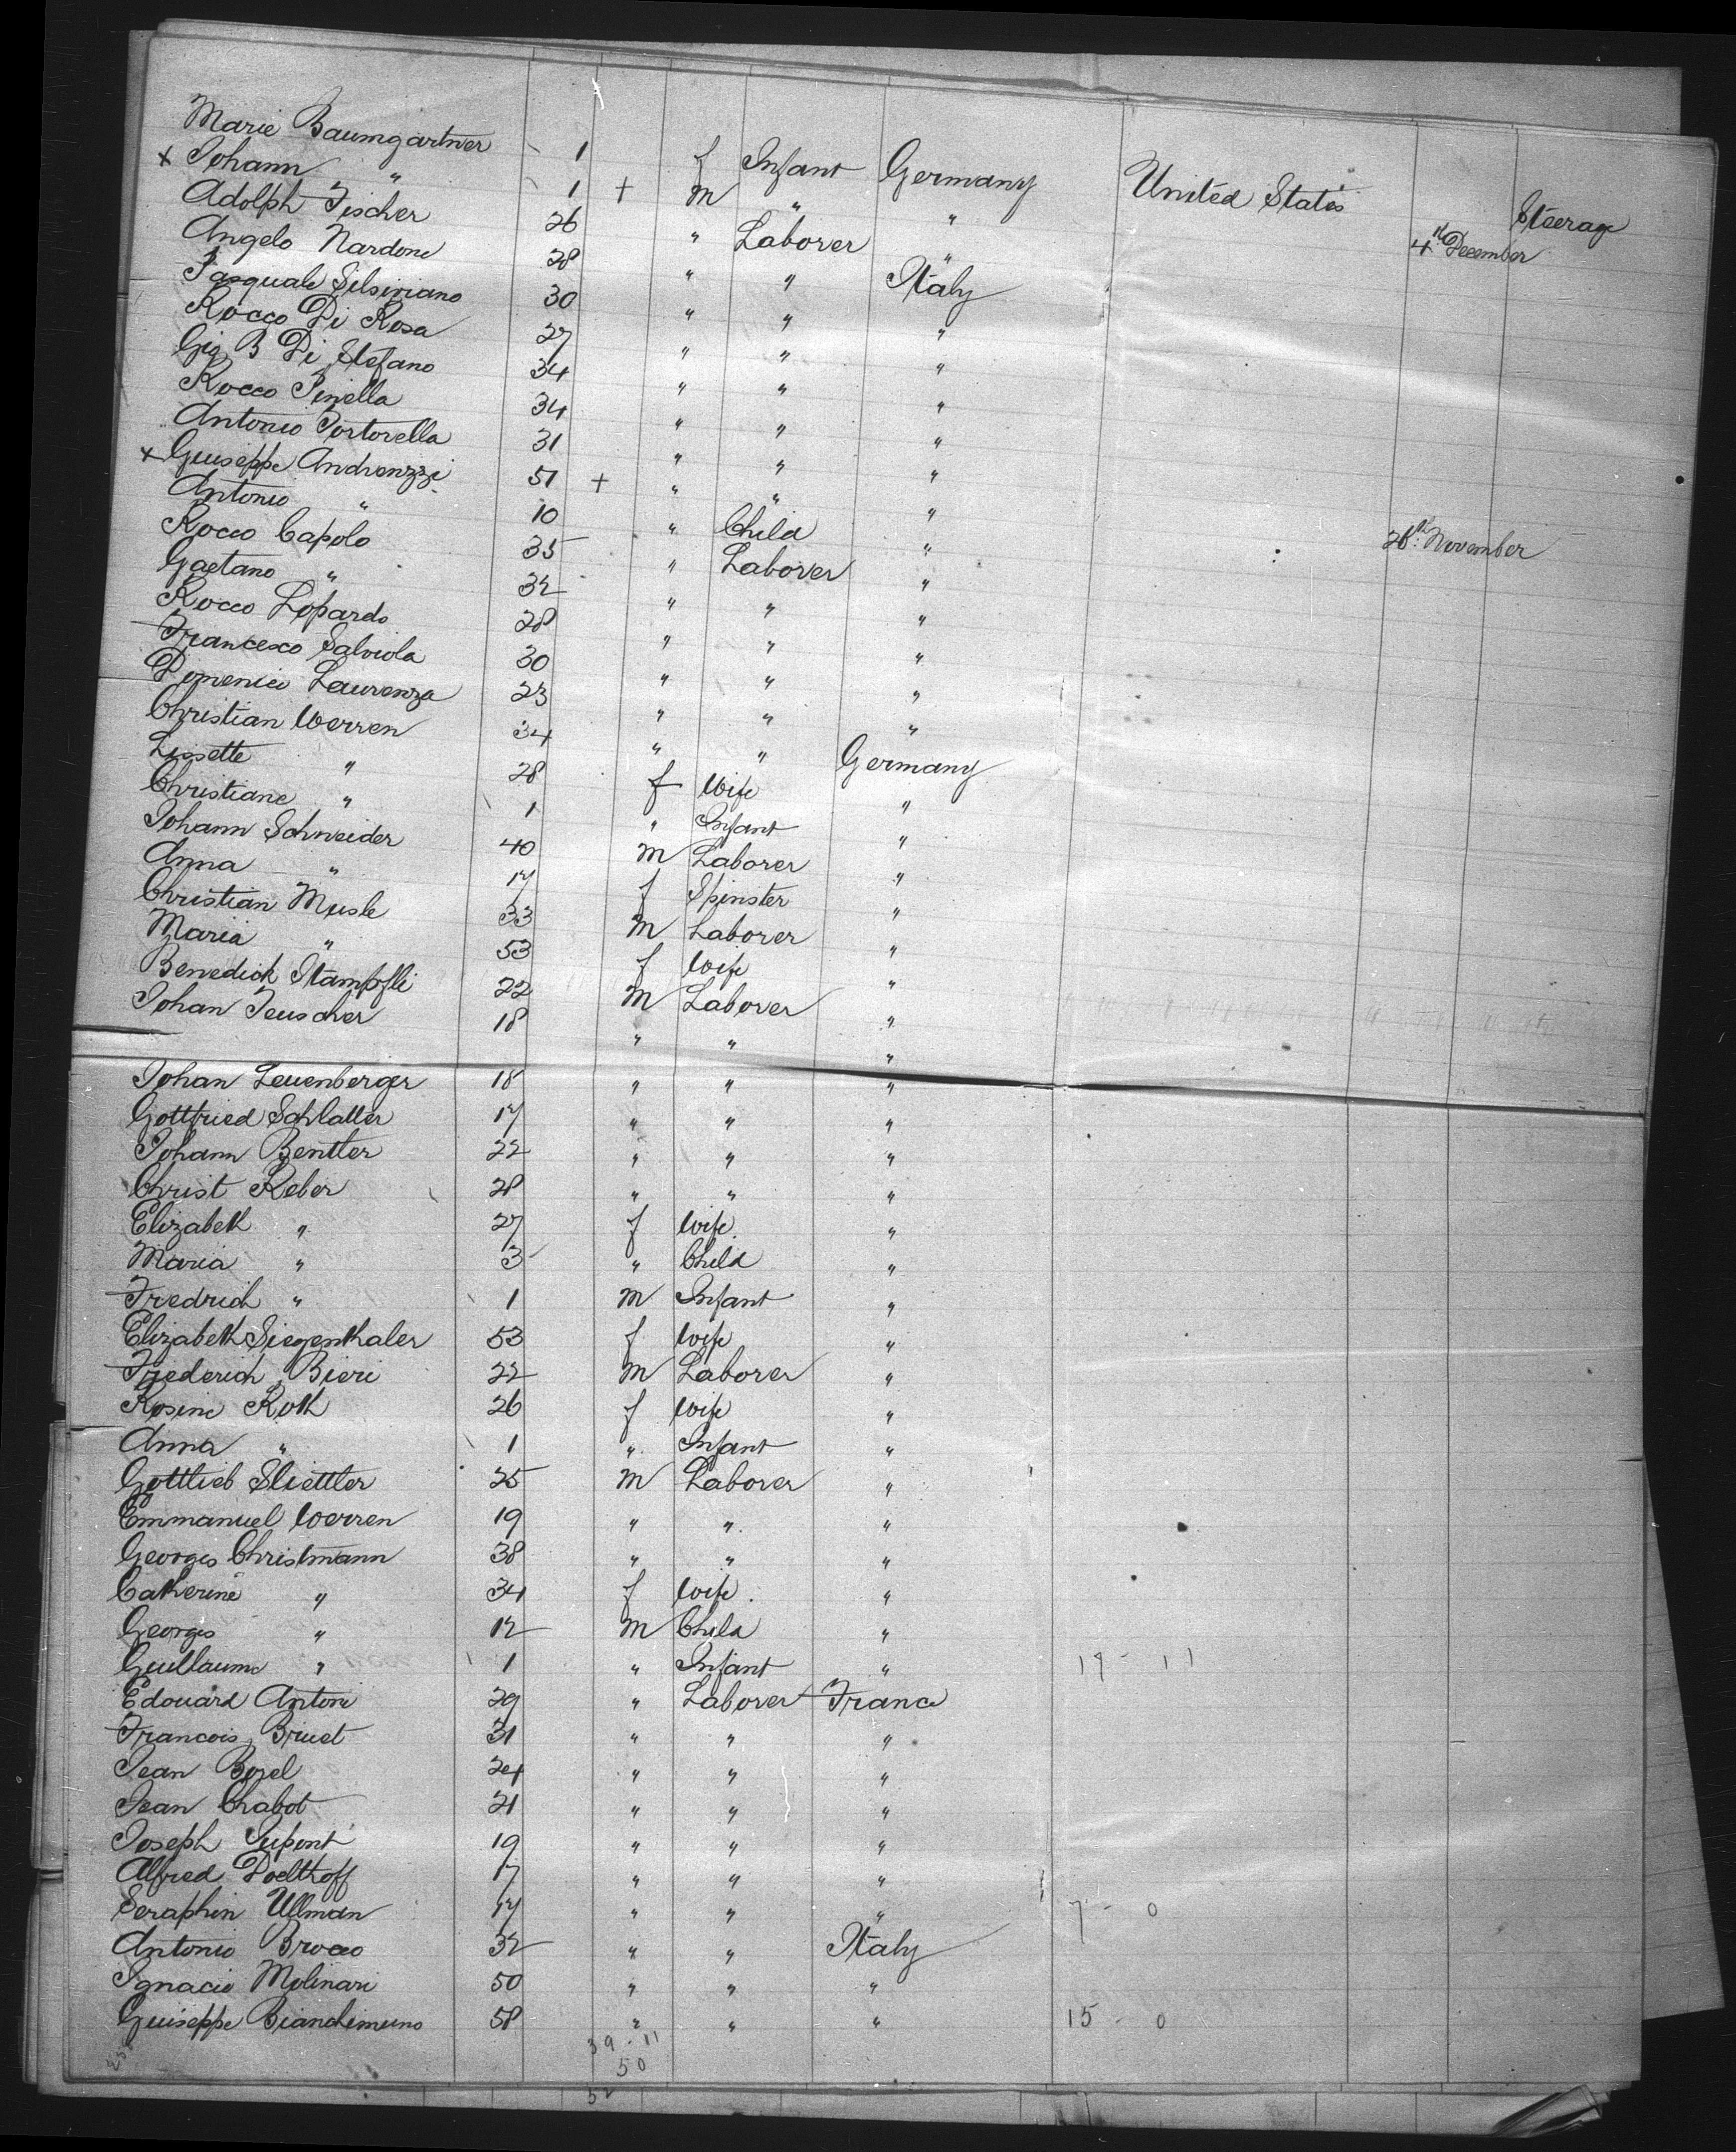 Marie Baumgartner 1 f Infant Germany United States Steerage
+ Johann " 1 + m " " 4th December
Adolph Fischer 26 " Laborer "
Angelo Nardone 28 " " Italy
Pasquale Silsiriano 30 " " "
Rocco Di Rosa 27 " " "
Gio B Di Stefano 34 " " "
Rocco Pinella 34 " " "
Antonio Portorella 31 " " "
+ Guiseppe Andrenzzi 51 + " " "
Antonio " 10 " Child " 26th November
Rocco Capolo 35 " Laborer "
Gaetano " 32 " " "
Rocco Lopardo 28 " " "
Francesco Salviola 30 " " "
Domenici Laurenza 23 " " "
Christian Werren 34 " " Germany
Lissette " 28 f Wife "
Christiane " 1 " Infant "
Johann Schneider 40 m Laborer "
Anna " 17 f Spinster "
Christian Musle 33 m Laborer "
Maria " 53 f Wife "
Benedick Stampfli 22 m Laborer "
Johan Teuscher 18 " " "
Johan Leuenberger 18 " " "
Gottfried Schlatter 17 " " "
Johann Bentler 22 " " "
Christ Reber 28 " " "
Elizabeth " 27 f Wife "
Maria " 3 " Child "
Fredrich " 1 m Infant "
Elizabeth Siegenthaler 53 f Wife "
Friederich Bieri 22 m Laborer "
Rosine Roth 26 f Wife "
Anna " 1 " Infant "
Gottlieb Sliettler 25 m Laborer "
Emmanuel Werren 19 " " "
Georges Christmann 38 " " "
Catherine " 34 f Wife "
Georges " 12 m Child "
Guillaume " 1 " Infant " 19 - 11
Edouard Antoni 29 " Laborer France
Francois Bruet 31 " " "
Jean Bozel 24 " " "
Jean Chabot 21 " " "
Joseph Dupont 19 " " "
Alfred Doelthoff 17 " " "
Seraphin Ullman 17 " " " 7 - 0
Antonio Brocco 32 " " Italy
Ignacio Molinari 50 " " "
Guiseppe Bianchimuno 58 " " " 15 - 0
39 - 11
50
52